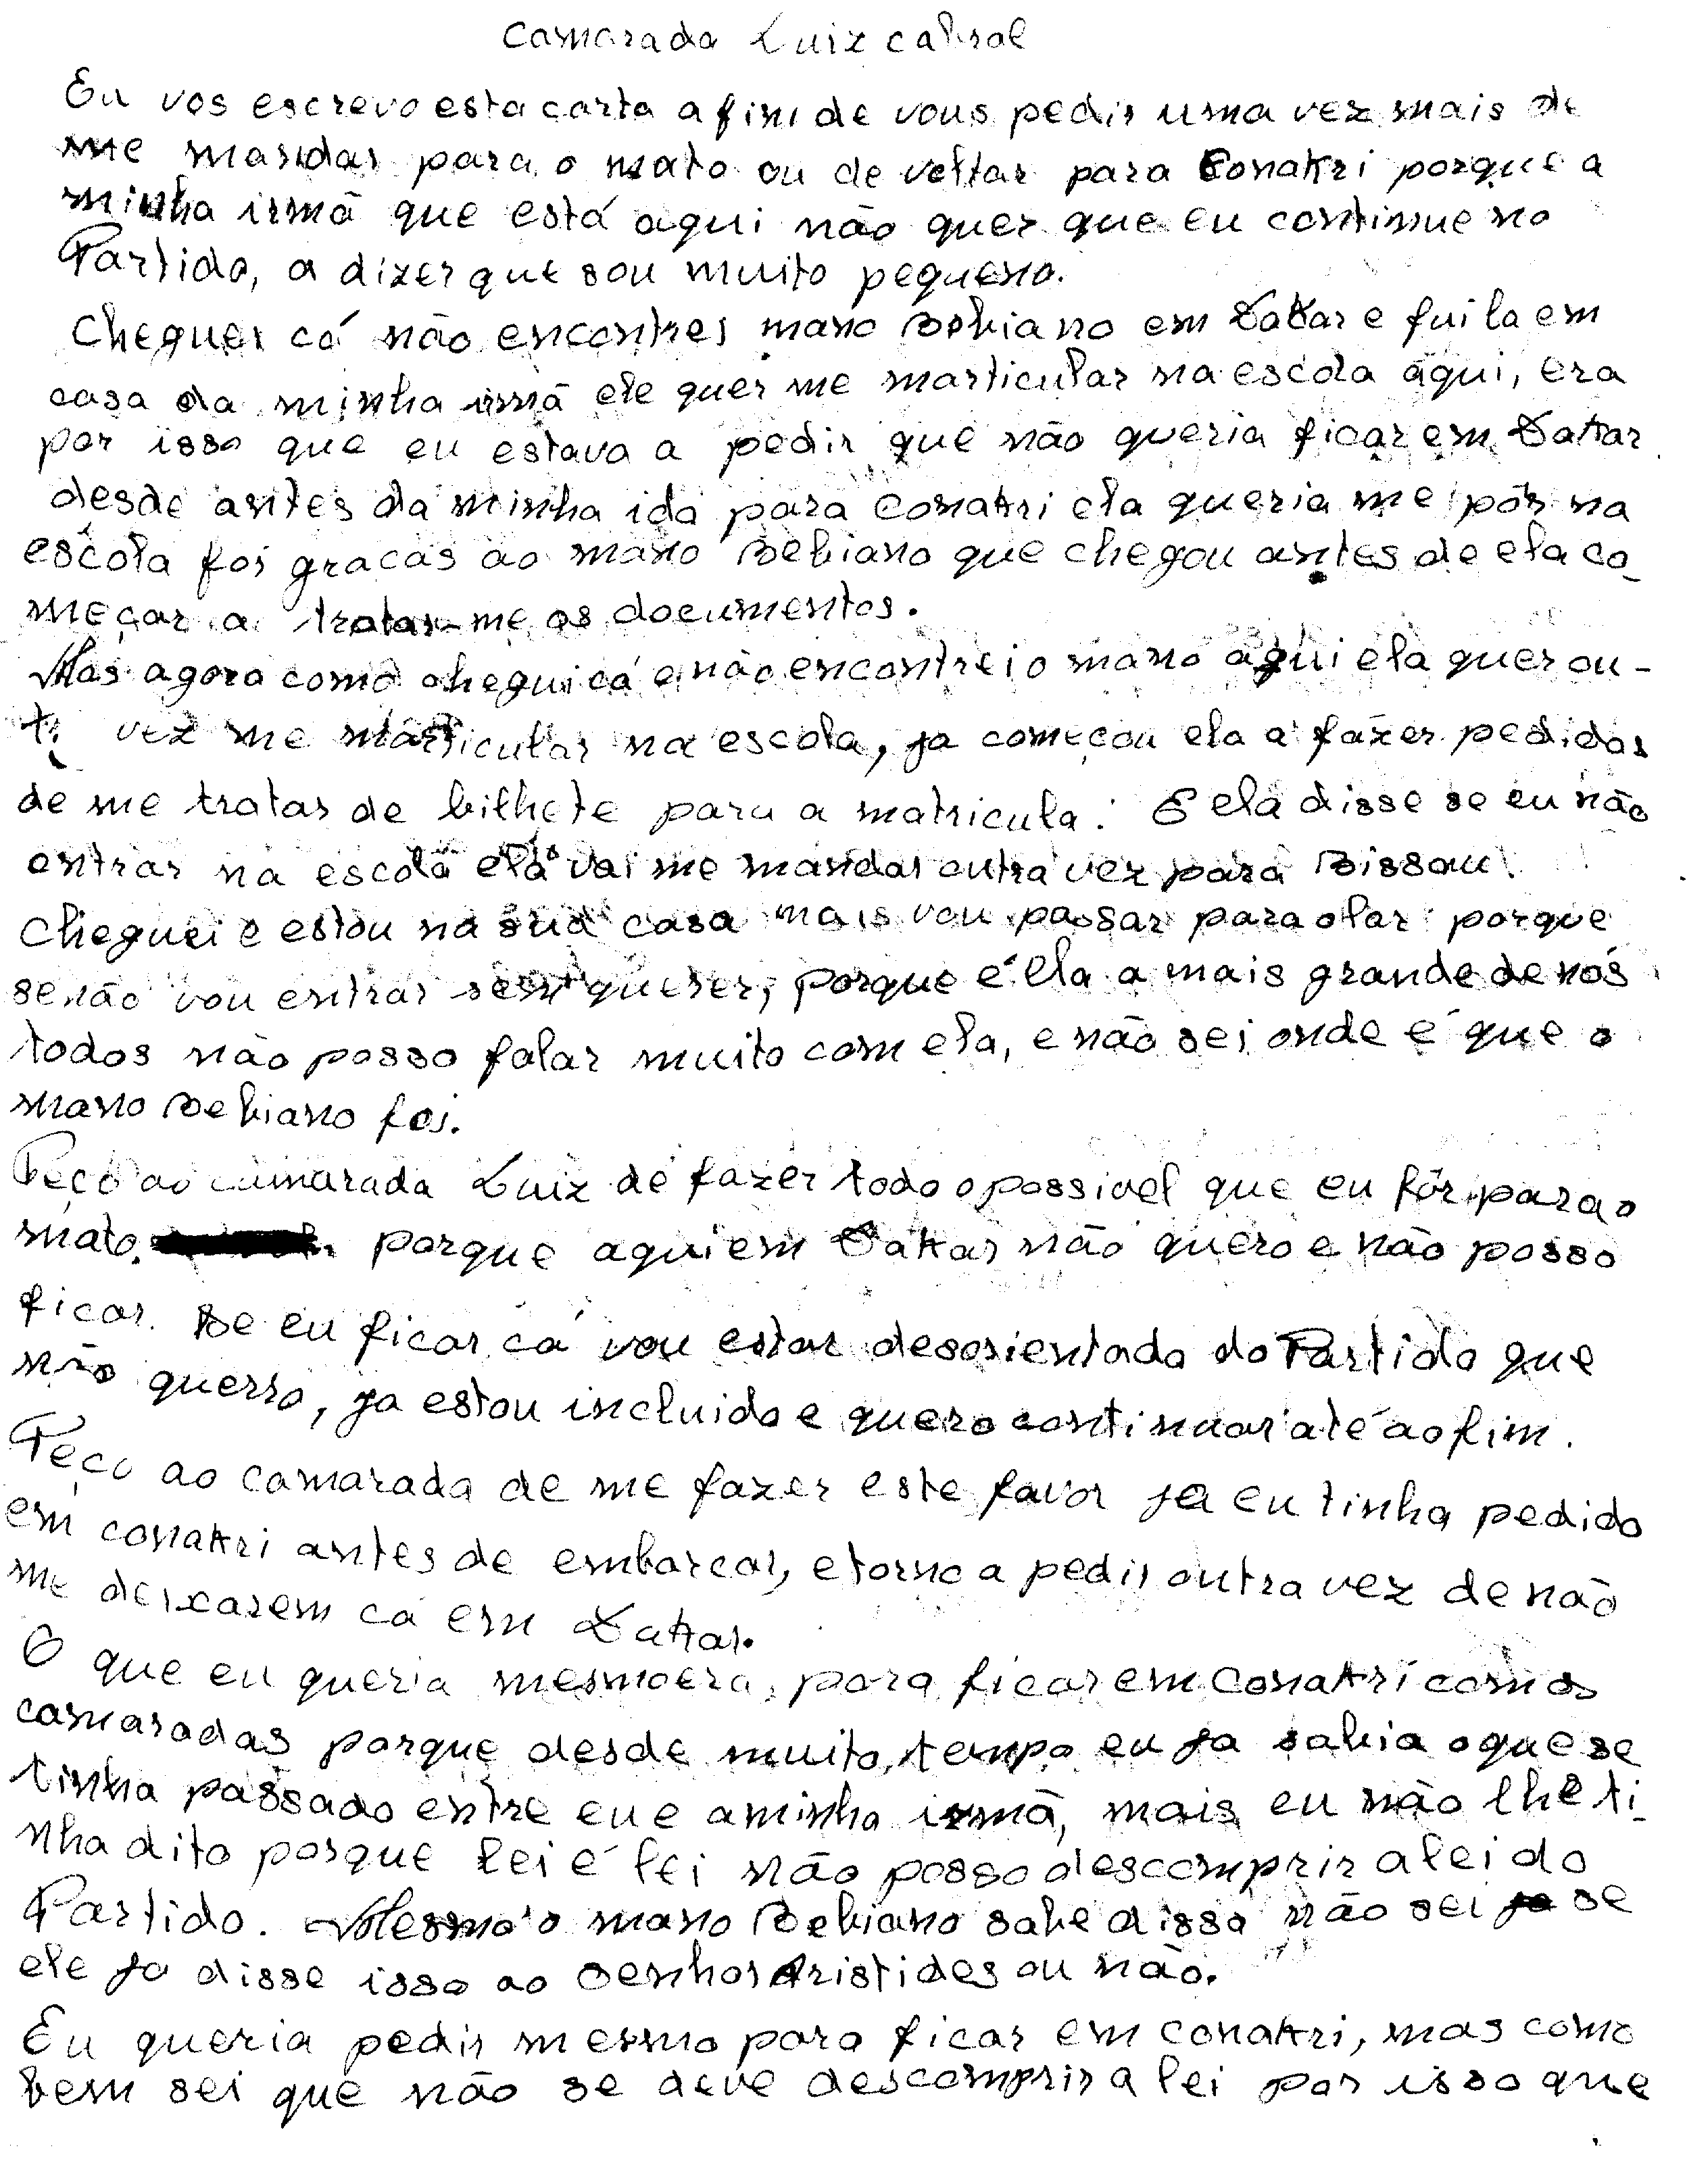 Camarada Luiz cabral
Eu vos escrevo esta carta a fim de vous pedir uma vez mais de
me mandar para o mato ou de voltar para Conakri porque a
minha irmã que está aqui não quer que eu continue no
Partido, a dizer que sou muito pequeno.
Cheguei cá não encontrei mano Bebiano em Dakar e fui la em
casa da minha irmã ele quer me marticular na escola aqui, era
por isso que eu estava a pedir que não queria ficar em Dakar
desde antes da minha ida para Conakri ela queria me pôr na
escola foi gracas ao mano Bebiano que chegou antes de ela co_
meçar a tratar-me os documentos.
Mas agora como chegui cá e não encontrei o mano aqui ela quer ou-
vez me marticular na escola, ja começou ela a fazer pedidos
de me tratar de bilhete para a matricula. E ela disse se eu não
entrar na escola ela vai me mandar outra vez para Bissau.
Cheguei e estou na sua casa mais vou passar para o lar porque
senão vou entrar sem querer, porque é ela a mais grande de nós
todos não posso falar muito com ela, e não sei onde é que o
mano Bebiano foi.
Peço ao camarada Luiz de fazer todo o possivel que eu fôr para o
mato. porque aqui em Dakar não quero e não posso
ficar. Se eu ficar cá vou estar desorientado do Partido que
não querro, ja estou incluido e quero continuar até ao fim.
Peço ao camarada de me fazer este favor ja eu tinha pedido
em conakri antes de embarcar, e torno a pedir outra vez de não
me deixarem cá em Dakar.
O que eu queria mesmo era, para ficar em Conakri com os
camaradas porque desde muito tempo eu ja sabia o que se
tinha passado entre eu e a minha irmã, mais eu não lhe ti_
nha dito porque lei é lei não posso descomprir a lei do
Partido. Mesmo o mano Bebiano sabe disso não sei se
ele ja disse isso ao Senhor Aristides ou não.
Eu queria pedir mesmo para ficar em conakri, mas como
bem sei que não se deve descomprir a lei por isso que